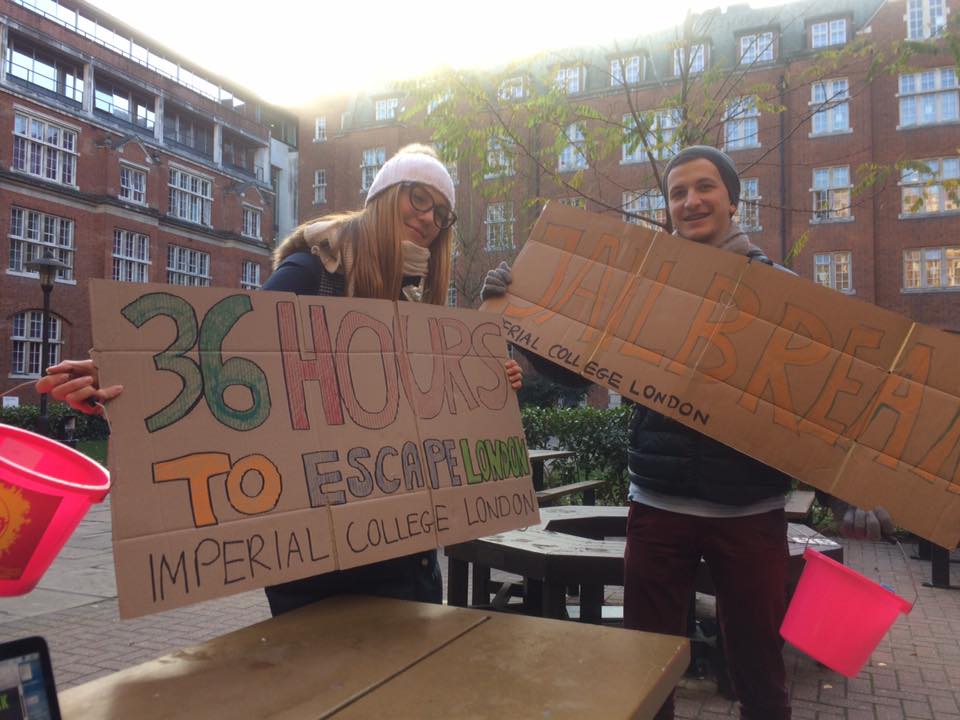 36 HOURS
TO ESCAPE LONDON
IMPERIAL COLLEGE LONDON
JAILBREA
ERIAL COLLEGE LONDON